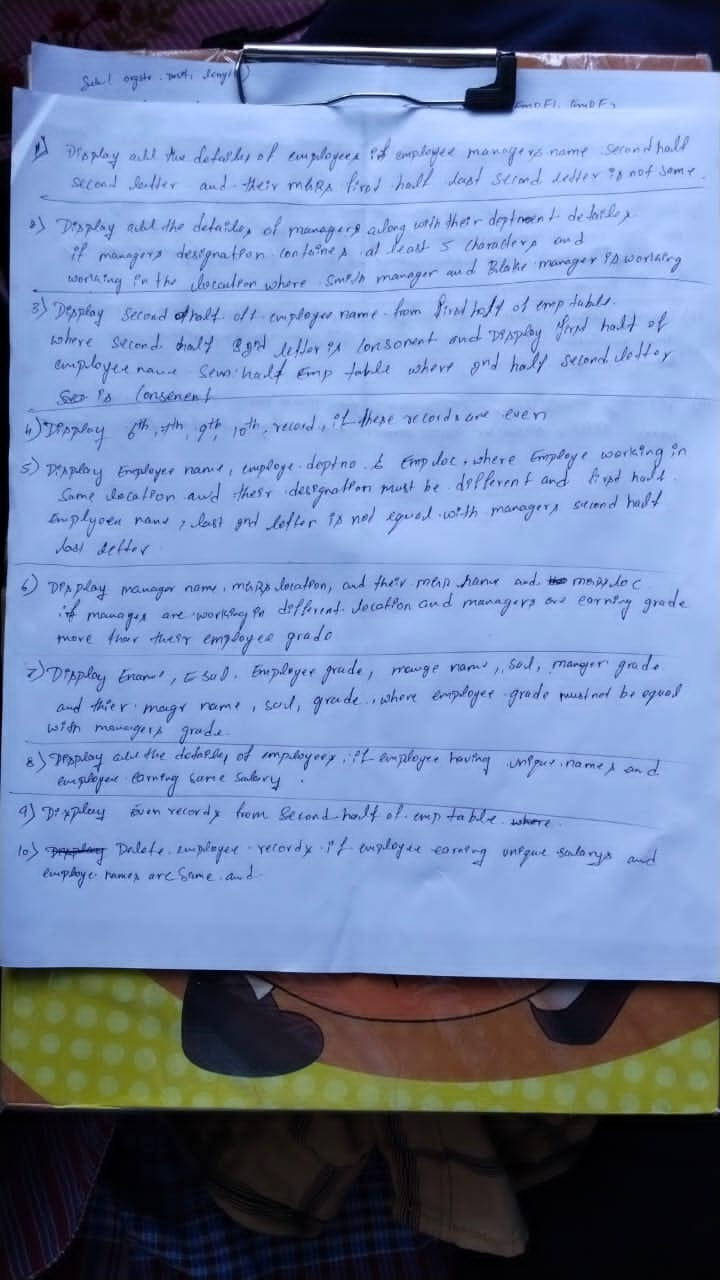 Select ... length)
EmpF1, EmpF2
1) Display all the detailes of employees if employee managers name second half
second letter and their mgrs first half last second letter is not same.
2) Display all the detailes of managers along with their deptment detailes
if managers designation containes at least 5 characters and
working in the location where Smith manager and Blake manager is working
3) Display second half off employee name from first half of emp table.
where second half letter is consonent and Display first half of
employee name half Emp table where 2nd half second letter
is Consenent
4) Display 6th, 7th, 9th, 10th, record, if these records are even
5) Display Employee name, employe deptno & Emp loc, where Employe working in
same location and their designation must be different and first half
Employee name, last 2nd letter is not equal with managers second half
last letter
6) Display manager name, mgrs location, and their mgrs name and mgrs loc
if manager are working in different location and managers are earning grade
more than their employee grade
7) Display Ename, Esal, Employee grade, name, Sal, manger grade
and thier magr name, sal, grade, where employee grade must not be equal
with managers grade.
8) Display all the detailes of employees, if employee having unique names and
employee earning same salary.
9) Display Even records from Second half of emp table where.
10) Display Delete employee records if employee earning unique salarys and
employe names are same and